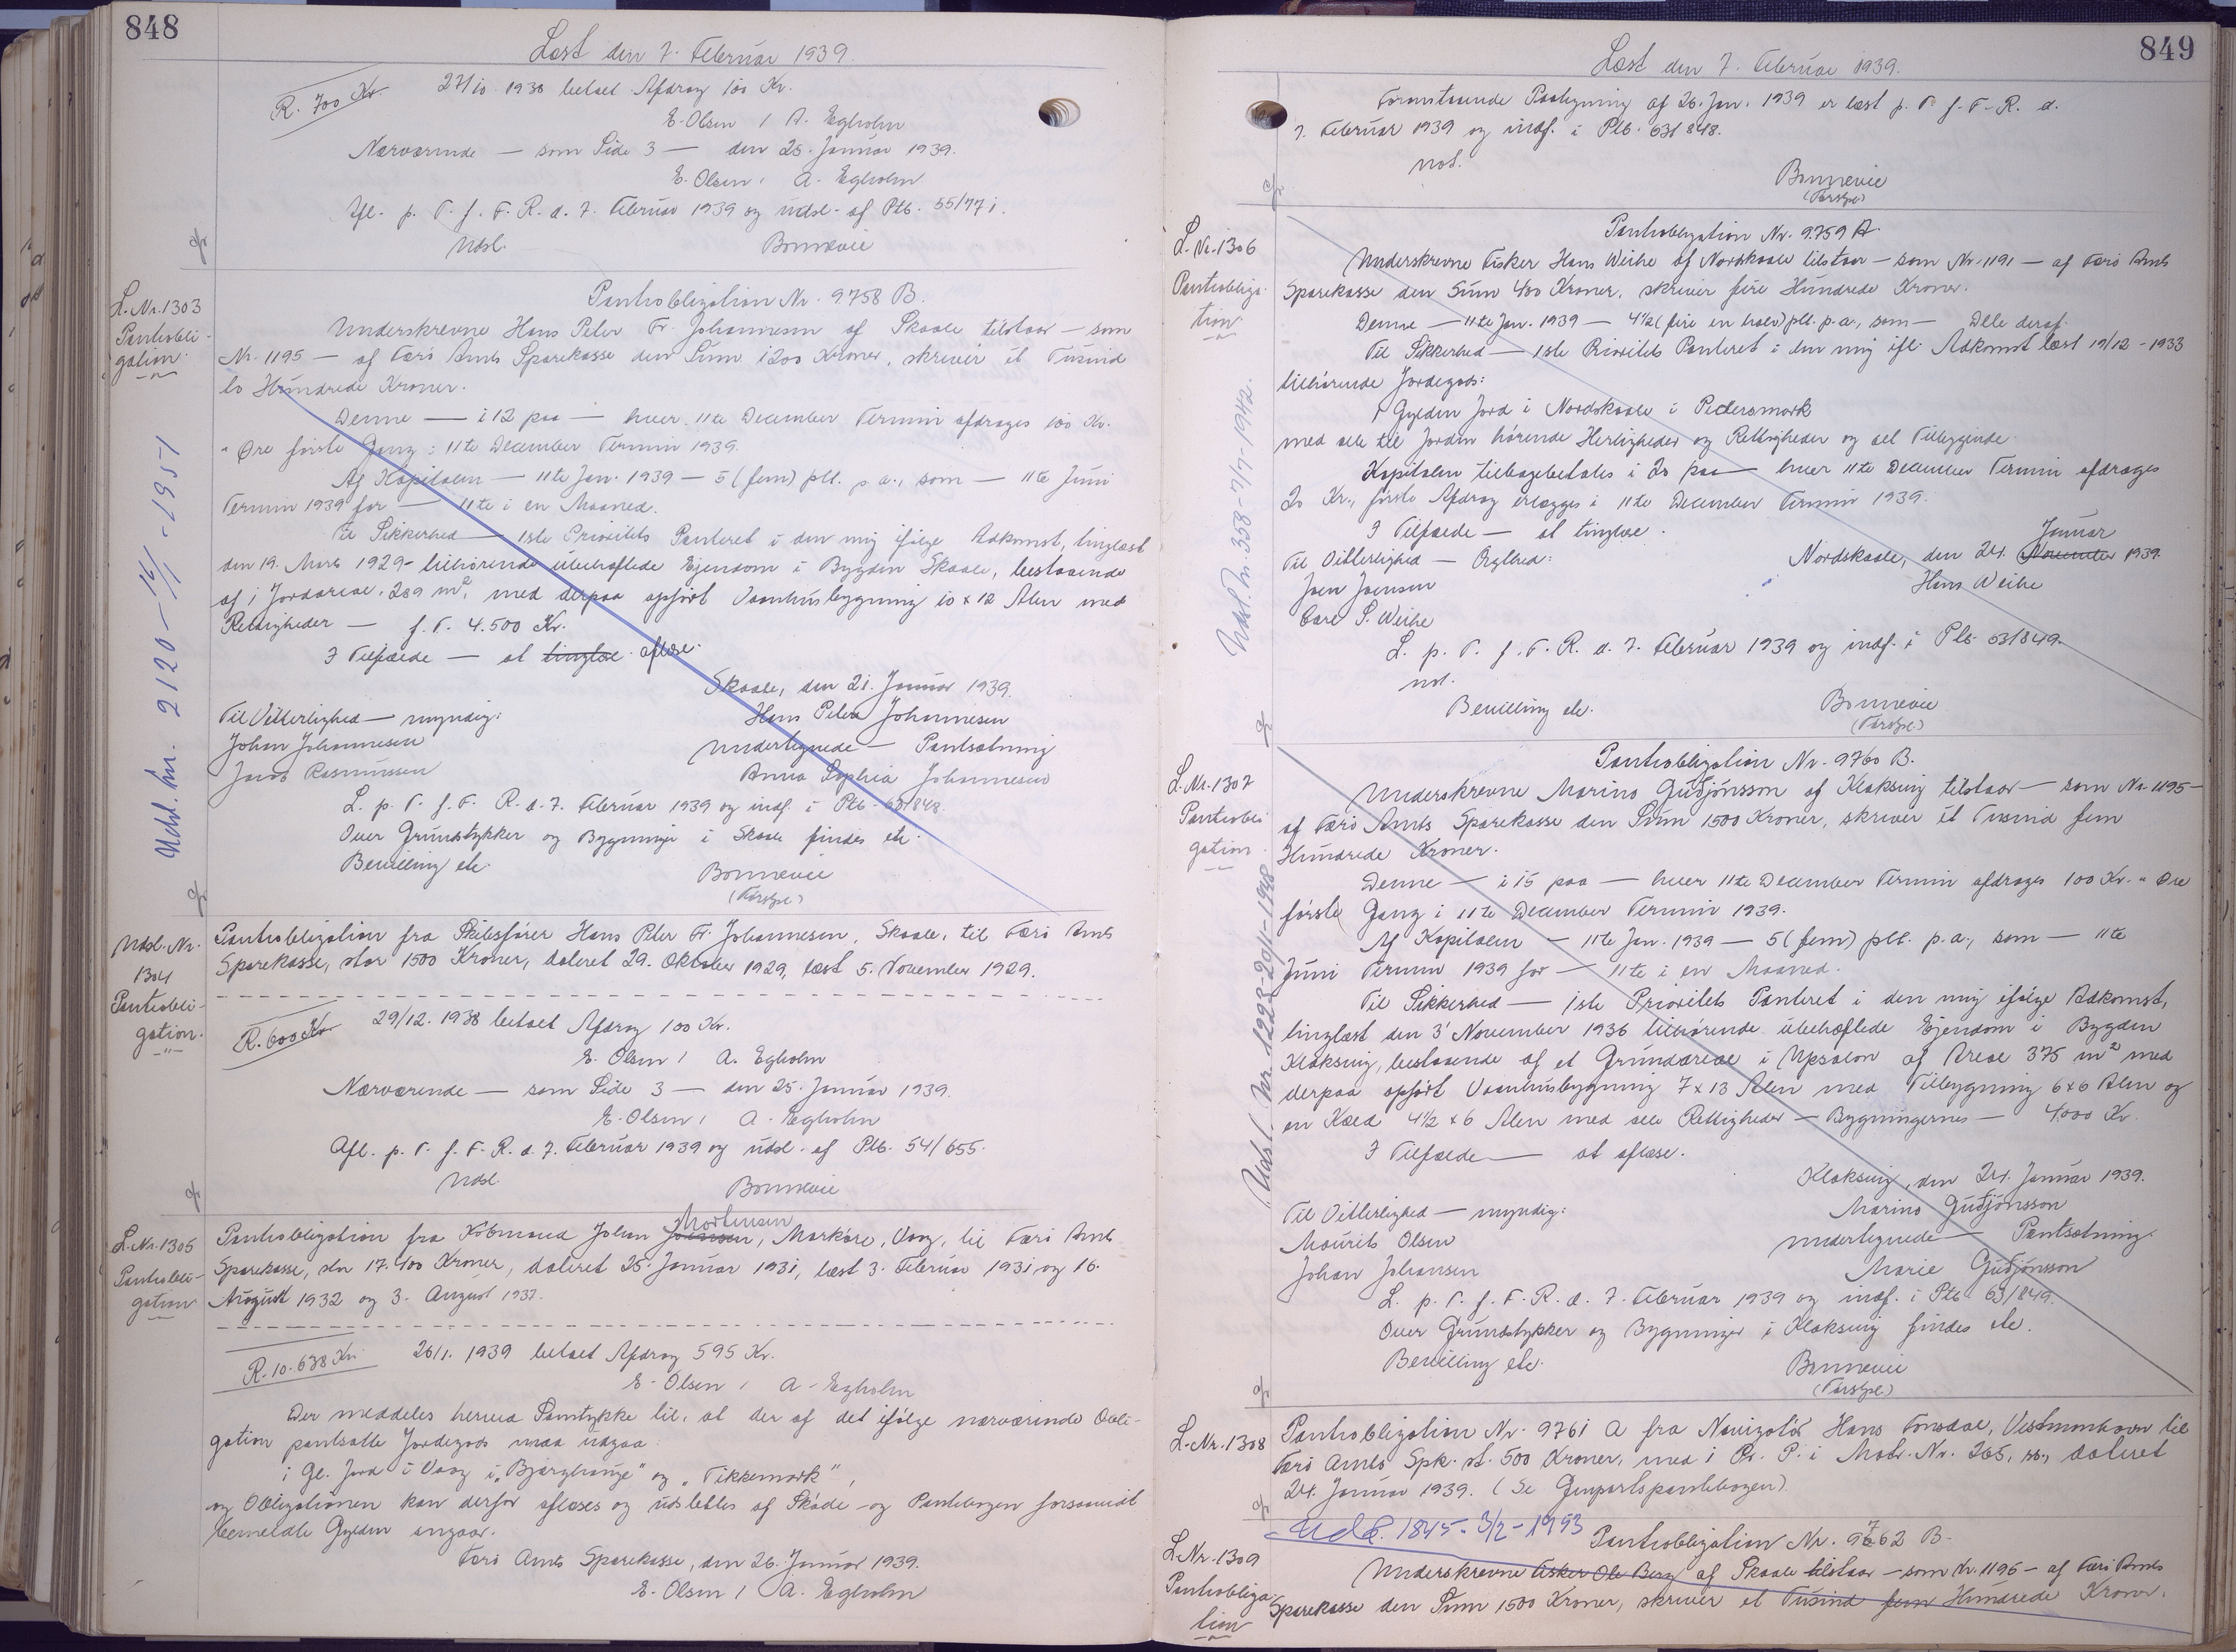 848
Læst den 7. Februar 1939.
R. 700 Kr.
27/10 1938 betalt Afdrag 100 Kr.
E. Olsen / A. Egholm
Nærværende — som Side 3 — den 25. Januar 1939.
E. Olsen / A. Egholm
Afl. p. T. f. F. R. d. 7. Februar 1939 og udsl. af Ptb. 55/77 i.
Udsl.
Bonnevie
L. Nr. 1303
Pantobli-
gation.
Pantobligation Nr. 9758 B.
Underskrevne Hans Peter Fr. Johannesen af Skaale tilstaar — som
Nr. 1195 — af Færø Amts Sparekasse den Sum 1200 Kroner, skriver et Tusind
to Hundrede Kroner.
Denne — i 12 paa — hver 11te December Termin afdrages 100 Kr.
" Øre første Gang i 11te December Termin 1939.
Af Kapitalen — 11te Jan. 1939 — 5 (fem) pCt. p.a., som — 11te Juni
Termin 1939 for — 11te i en Maaned.
Til Sikkerhed — 1ste Prioritets Panteret i den mig ifølge Adkomst, tinglæst
den 19. Marts 1929 tilhørende ubehæftede Ejendom i Bygden Skaale, bestaaende
af i Jordareal 289 m², med derpaa opført Vaanhusbygning 10 x 12 Alen med
Rettigheder — f. T. 4.500 Kr.
I Tilfælde — at tinglæ. aflæse.
Skaale, den 21. Januar 1939.
Til Vitterlighed — myndig:
Hans Peter Johannesen
Johan Johannesen
undertegnede — Pantsætning
Jacob Rasmussen
Anna Sophia Johannesen
L. p. T. f. F. R. d. 7. Februar 1939 og indf. i Ptb. 63/848.
Over Grundstykker og Bygninger i Skaale findes etc.
Bevilling etc.
Bonnevie
(Færøspl.)
Udsl. Nr. 2120 — 12/1 - 1951
Udsl. Nr.
1304
Pantobli-
gation.
Pantobligation fra Skibsfører Hans Peter Fr. Johannesen, Skaale, til Færø Amts
Sparekasse, stor 1500 Kroner, dateret 29. Oktober 1929, læst 5. November 1929.
R. 600 Kr.
29/12. 1938 betalt Afdrag 100 Kr.
E. Olsen / A. Egholm
Nærværende — som Side 3 — den 25. Januar 1939.
E. Olsen / A. Egholm
Afl. p. T. f. F. R. d. 7. Februar 1939 og udsl. af Ptb. 54/655.
Udsl.
Bonnevie
L. Nr. 1305
Pantobli-
gation
Mortensen
Pantobligation fra Købmand Johan Johansen, Markøre, Vaag, til Færø Amts
Sparekasse, stor 17.400 Kroner, dateret 25. Januar 1931, læst 3. Februar 1931 og 16.
August 1932 og 3. August 1937.
R. 10.638 Kr.
26/1. 1939 betalt Afdrag 595 Kr.
E. Olsen / A. Egholm
Der meddeles herved Samtykke til, at der af det ifølge nærværende Obli-
gation pantsatte Jordegods maa udgaa:
1 Gl. Jord i Vaag i "Bjarghauge" og "Tikkemark",
og Obligationen kan derfor aflæses og udslettes af Skøde- og Pantebogen forsaavidt
bemeldte Gylden angaar.
Færø Amts Sparekasse, den 26. Januar 1939.
E. Olsen / A. Egholm
849
Læst den 7. Februar 1939.
Foranstaaende Paategning af 26. Jan. 1939 er læst p. T. f. F. R. d.
7. Februar 1939 og indf. i Ptb. 63/848.
not.
Bonnevie
(Færøspl.)
L. Nr. 1306
Pantobliga-
tion
Pantobligation Nr. 9759 A.
Underskrevne Fisker Hans Weihe af Nordskaale tilstaar — som Nr. 1191 — af Færø Amts
Sparekasse den Sum 400 Kroner, skriver fire Hundrede Kroner.
Denne — 11te Jan. 1939 — 4½ (fire en halv) pCt. p.a., som — Dele deraf.
Til Sikkerhed — 1ste Prioritets Panteret i den mig ifl. Adkomst læst 19/12 - 1933
tilhørende Jordegods:
1 Gylden Jord i Nordskaale i Pedersmark
med alle til Jorden hørende Herligheder og Rettigheder og al Tilliggende.
Kapitalen tilbagebetales i 20 paa — hver 11te December Termin afdrages
20 Kr., første Afdrag erlægges i 11te December Termin 1939.
I Tilfælde — at tinglæse.
Januar
Til Vitterlighed — Ægthed:
Nordskaale, den 24. November 1939.
Joen Joensen
Hans Weihe
Carl S. Weihe
L. p. T. f. F. R. d. 7. Februar 1939 og indf. i Ptb. 63/849.
not.
Bevilling etc.
Bonnevie
(Færøspl.)
Udsl. Nr. 358 - 7/7 - 1942.
L. Nr. 1307
Pantobli-
gation
Pantobligation Nr. 9760 B.
Underskrevne Marino Guðjónsson af Klaksvig tilstaar — som Nr. 1195 —
af Færø Amts Sparekasse den Sum 1500 Kroner, skriver et Tusind fem
Hundrede Kroner.
Denne — i 15 paa — hver 11te December Termin afdrages 100 Kr. " Øre
første Gang i 11te December Termin 1939.
Af Kapitalen — 11te Jan. 1939 — 5 (fem) pCt. p.a., som — 11te
Juni Termin 1939 for — 11te i en Maaned.
Til Sikkerhed — 1ste Prioritets Panteret i den mig ifølge Adkomst,
tinglæst den 3' November 1936 tilhørende ubehæftede Ejendom i Bygden
Klaksvig, bestaaende af et Grundareal i Upsalon af Areal 375 m² med
derpaa opført Vaanhusbygning 7 x 13 Alen med Tilbygning 6 x 6 Alen og
en Kæld 4½ x 6 Alen med alle Rettigheder — Bygningernes — 4000 Kr.
I Tilfælde — at aflæse.
Klaksvig, den 24. Januar 1939.
Til Vitterlighed — myndig:
Marino Guðjónsson
Mourits Olsen
undertegnede — Pantsætning.
Johan Johansen
Marie Guðjónsson
L. p. T. f. F. R. d. 7. Februar 1939 og indf. i Ptb. 63/849.
Over Grundstykker og Bygninger i Klaksvig findes etc.
Bevilling etc.
Bonnevie
(Færøspl.)
Udsl. Nr. 1223-20/11-1948
L. Nr. 1308
Pantobligation Nr. 9761 A fra Navigatør Hans Fonsdal, Vestmanhavn til
Færø Amts Spk. st. 500 Kroner, med 1 Pr. P. i Matr. Nr. 265, sb, dateret
24. Januar 1939. (Se Genpartspantebogen).
Udsl. 1845. 3/2 - 1953
L. Nr. 1309
Pantobliga-
tion
Pantobligation Nr. 9762 B.
Underskrevne Fisker Ole Berg af Skaale tilstaar — som Nr. 1195 — af Færø Amts
Sparekasse den Sum 1500 Kroner, skriver et Tusind fem Hundrede Kroner.